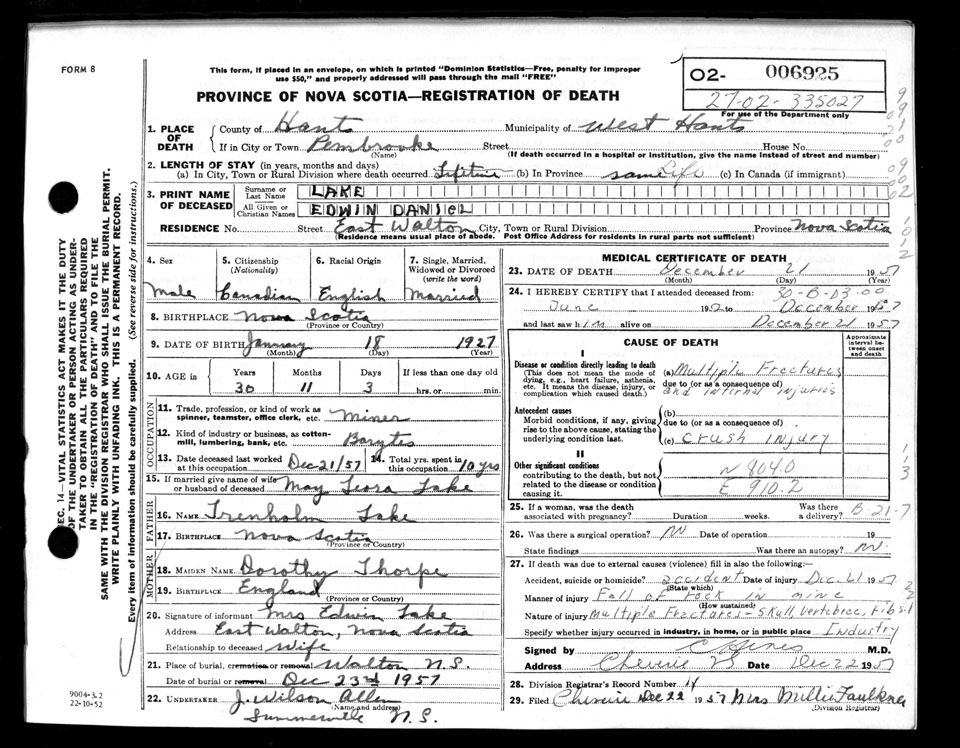 FORM 8
This form, if placed in an envelope, on which is printed "Dominion Statistics—Free, penalty for improper
use $50," and properly addressed will pass through the mail "FREE"
O2- 006925
27-02-335027
For use of the Department only
PROVINCE OF NOVA SCOTIA—REGISTRATION OF DEATH
1. PLACE OF DEATH County of Hants Municipality of West Hants
If in City or Town Pembrooke Street House No.
(Name) (If death occurred in a hospital or institution, give the name instead of street and number)
2. LENGTH OF STAY (in years, months and days)
(a) In City, Town or Rural Division where death occurred Lifetime (b) In Province same Life (c) In Canada (if immigrant)
3. PRINT NAME OF DECEASED Surname or Last Name LAKE
All Given or Christian Names EDWIN DANIEL
RESIDENCE No. Street East Walton City, Town or Rural Division Province Nova Scotia
(Residence means usual place of abode. Post Office Address for residents in rural parts not sufficient)
SEC. 14—VITAL STATISTICS ACT MAKES IT THE DUTY
OF THE UNDERTAKER OR PERSON ACTING AS UNDER-
TAKER TO OBTAIN ALL THE PARTICULARS REQUIRED
IN THE "REGISTRATION OF DEATH" AND TO FILE THE
SAME WITH THE DIVISION REGISTRAR WHO SHALL ISSUE THE BURIAL PERMIT.
WRITE PLAINLY WITH UNFADING INK. THIS IS A PERMANENT RECORD.
Every item of information should be carefully supplied. (See reverse side for instructions.)
4. Sex Male
5. Citizenship (Nationality) Canadian
6. Racial Origin English
7. Single, Married, Widowed or Divorced (write the word) Married
8. BIRTHPLACE Nova Scotia
(Province or Country)
9. DATE OF BIRTH January 18 1927
(Month) (Day) (Year)
10. AGE in Years Months Days If less than one day old
30 11 3 hrs. or min.
OCCUPATION
11. Trade, profession, or kind of work as spinner, teamster, office clerk, etc. Miner
12. Kind of industry or business, as cotton-mill, lumbering, bank, etc. Barytes
13. Date deceased last worked at this occupation Dec 21/57 14. Total yrs. spent in this occupation 10 yrs
15. If married give name of wife or husband of deceased May Leora Lake
FATHER
16. NAME Trenholm Lake
17. BIRTHPLACE Nova Scotia
(Province or Country)
MOTHER
18. MAIDEN NAME Dorothy Thorpe
19. BIRTHPLACE England
(Province or Country)
20. Signature of informant Mrs Edwin Lake
Address East Walton, Nova Scotia
Relationship to deceased Wife
21. Place of burial, cremation or removal Walton N.S.
Date of burial or removal Dec 23rd 1957
22. UNDERTAKER J. Wilson Allen
(Name and address)
Summerville N.S.
9004-3.2
22-10-52
MEDICAL CERTIFICATE OF DEATH
23. DATE OF DEATH December 21 1957
(Month) (Day) (Year)
24. I HEREBY CERTIFY that I attended deceased from: 30-B-03-00
June 1952 to December 1957
and last saw him alive on December 21 1957
CAUSE OF DEATH
Approximate interval between onset and death
I
Disease or condition directly leading to death
(This does not mean the mode of dying, e.g., heart failure, asthenia, etc. It means the disease, injury, or complication which caused death.)
(a) Multiple Fractures
due to (or as a consequence of)
and internal injuries
Antecedent causes
Morbid conditions, if any, giving rise to the above cause, stating the underlying condition last.
(b)
due to (or as a consequence of)
(c) Crush injury
II
Other significant conditions
contributing to the death, but not related to the disease or condition causing it.
N 804.0
E 910.2
25. If a woman, was the death associated with pregnancy? Duration weeks. Was there a delivery? B-21-7
26. Was there a surgical operation? No Date of operation 19
State findings Was there an autopsy? No
27. If death was due to external causes (violence) fill in also the following:—
Accident, suicide or homicide? accident Date of injury Dec 21 1957
(State which)
Manner of injury Fall of rock in mine
(How sustained)
Nature of injury Multiple Fractures - Skull, Vertebrae, ribs
Specify whether injury occurred in industry, in home, or in public place Industry
Signed by M.D.
Address Cheverie NS Date Dec 22 1957
28. Division Registrar's Record Number 14
29. Filed Cheverie Dec 22 1957 Mrs Millie Faulkner
(Division Registrar)